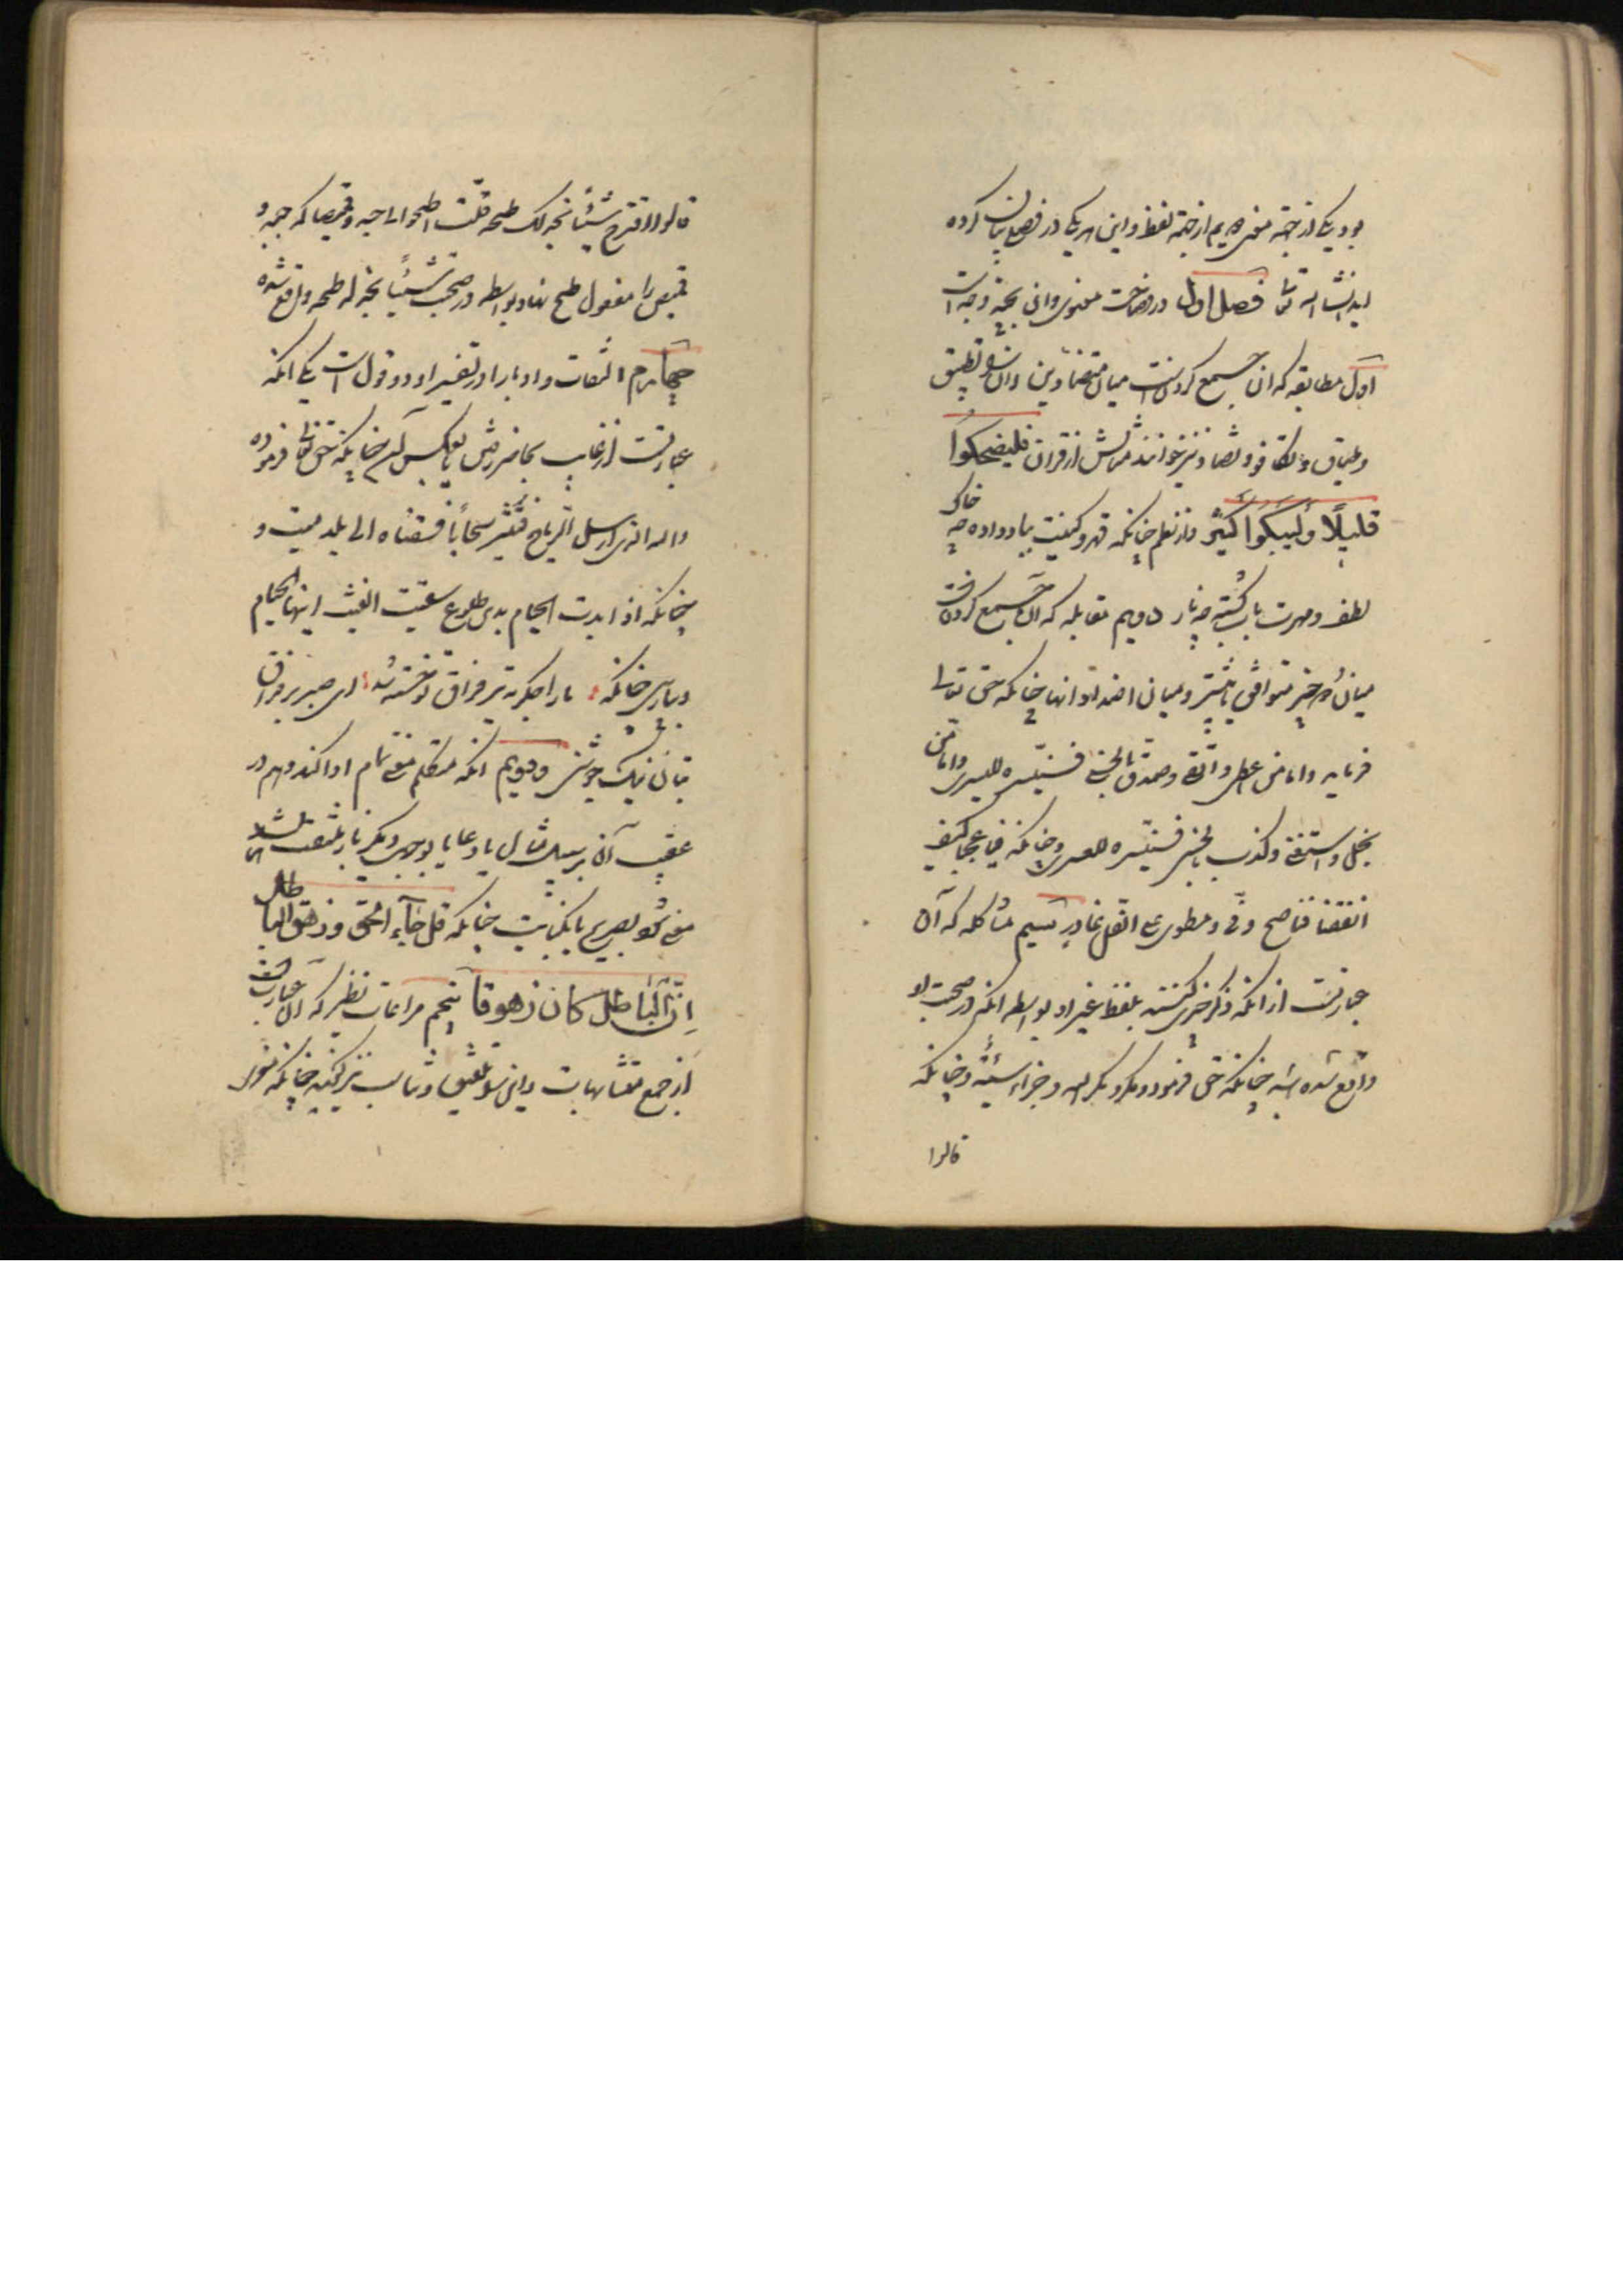 بود یکی از جهة معنی دویم از جهة لفظ و این هر یکی در فصلی بیان کرده
اید انشاالله تعالی فصل اول در وضاحت معنوی و آن بچند وجه است
اول مطابقه که آن جمع کردنست میان متضادین و آن را تطبیق
و طباق و تکافو و تضاد نیز خوانند مثالش از قرآن فلیضحکوا
قلیلًا ولیبکوا کثیر و از نظم چنانکه قهر و کینت بباد داده چه خاک
لطف و مهرت باب کشته چه نار دویم مقابله که آن جمع کردنست
میان دو چیز متوافق یا بیشتر و میان اضداد آنها چنانکه حق تعالی
فرماید و اما من اعطی و اتقی و صدق بالحسنی فسنیسره للیسری و اما من
بخل و استغنی و کذب بالحسنی فسنیسره للعسری و چنانکه فیا عجبا کیف
اتفقنا فناصح وفی و مطوی علی الغل غادر سیم مشاکله که آن
عبارتست از آنکه ذکر چیزی کنند بلفظ غیر او بواسطه آنکه در صحبت او
واقع شده باشد چنانکه حق فرمود و مکروا و مکر الله و جزاء سیئة و چنانکه
قالوا
قالوا اقترح شیئًا نجد لک طبخه قلت اطبخوا لی جبه و قمیصا که جبه و
قمیص را مفعول طبخ نهاد بواسطه در صحبت شیئًا نجد له طبخه واقع شده
چهارم التفات و ادبا را در تفسیر او دو قول است یکی آنکه
عبارتست از غایب بحاضر رفتن یا بعکس آن چنانکه حق تعالی فرموده
والله الذی ارسل الریاح فتثیر سحابًا فسقناه الی بلد میت و
چنانکه اذا بدت الخیام بذی طلوع سقیت الغیث ایتها الخیام
و پارسی چنانکه ما را جگر به تیر فراق تو خسته شد ای صبر بر فراق
بتان نیک جوشنی و دویم آنکه متکلم معنی تمام ادا کند و هم در
عقب آن بر سبیل مثال یا دعا یا بوجهی دیگر باز ملتفت شد
معنی شود بصریح یا بکنایت چنانکه قل جاء الحق و زهق الباطل
ان الباطل کان زهوقا پنجم مراعات نظیر که آن عبارتست
از جمع متشابهات و این را توفیق و تناسب نیز گویند چنانکه